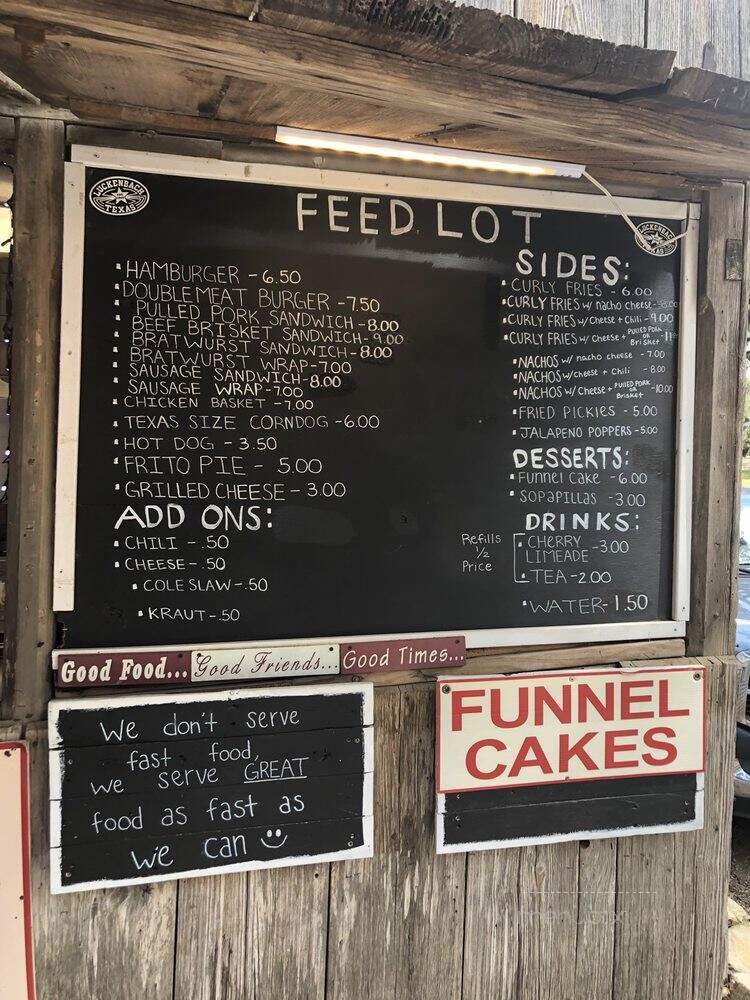 LUCKENBACH
TEXAS
FEED LOT
LUCKENBACH
TEXAS
HAMBURGER - 6.50
DOUBLEMEAT BURGER - 7.50
PULLED PORK SANDWICH - 8.00
BEEF BRISKET SANDWICH - 9.00
BRATWURST SANDWICH - 8.00
BRATWURST WRAP - 7.00
SAUSAGE SANDWICH - 8.00
SAUSAGE WRAP - 7.00
CHICKEN BASKET - 7.00
TEXAS SIZE CORNDOG - 6.00
HOT DOG - 3.50
FRITO PIE - 5.00
GRILLED CHEESE - 3.00
ADD ONS:
CHILI - .50
CHEESE - .50
COLE SLAW - .50
KRAUT - .50
SIDES:
CURLY FRIES - 6.00
CURLY FRIES w/ nacho cheese -
CURLY FRIES w/ Cheese + Chili - 9.00
CURLY FRIES w/ Cheese + PULLED PORK OR Brisket -
NACHOS w/ nacho cheese - 7.00
NACHOS w/ cheese + Chili - 8.00
NACHOS w/ Cheese + PULLED PORK OR Brisket - 10.00
FRIED PICKIES - 5.00
JALAPENO POPPERS - 5.00
DESSERTS:
Funnel Cake - 6.00
SOPAPILLAS - 3.00
DRINKS:
Refills
1/2
Price
CHERRY
LIMEADE - 3.00
TEA - 2.00
WATER - 1.50
Good Food... Good Friends... Good Times...
We don't serve
fast food,
we serve GREAT
food as fast as
we can
FUNNEL
CAKES